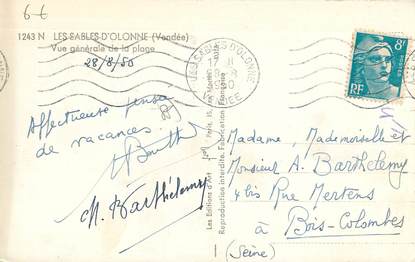 6-6
1243 N LES SABLES D'OLONNE (Vendée)
Vue générale de la plage
28/8/50
Affectueuse pensée
de vacances
M. Barthélemy
LES SABLES D'OLONNE
8F
POSTES
RF
Les Editions d'Art
Reproduction interdite. Fabrication Française
Madame, Mademoiselle et
Monsieur A. Barthelemy
4 bis Rue Mertens
à Bois-Colombes
(Seine)